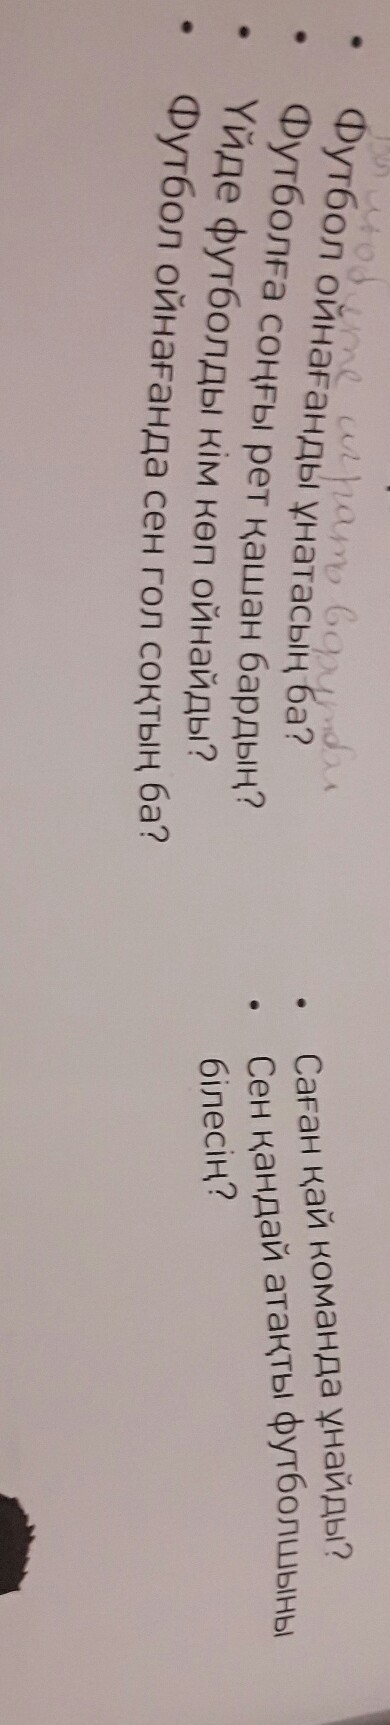 играть в футбол
• Футбол ойнағанды ұнатасың ба?
• Футболға соңғы рет қашан бардың?
• Үйде футболды кім көп ойнайды?
• Футбол ойнағанда сен гол соқтың ба?
• Саған қай команда ұнайды?
• Сен қандай атақты футболшыны
білесің?